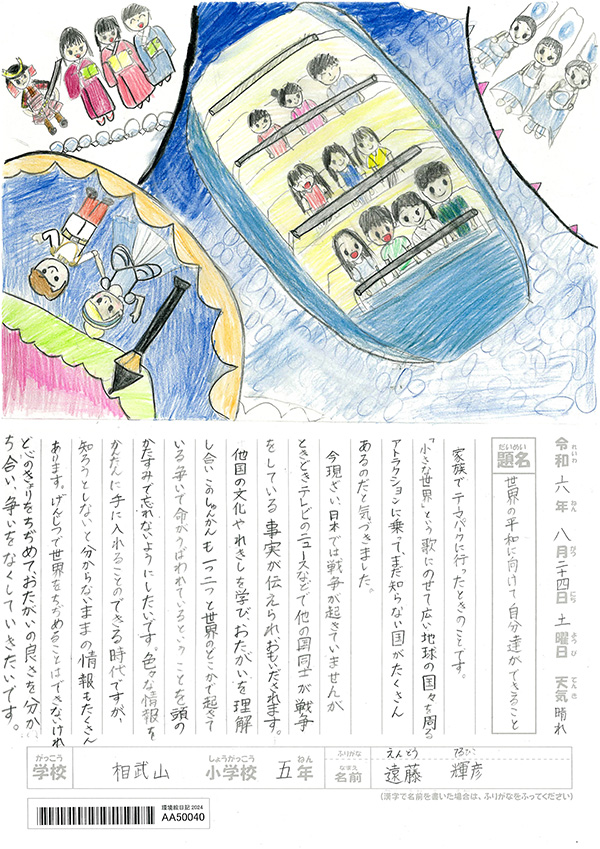 令和六年 八月二十四日 土曜日 天気 晴れ
れいわ ねん がつ にち ようび てんき
だいめい
題名 世界の平和に向けて自分達ができること
家族でテーマパークに行ったときのことです。
「小さな世界」という歌にのせて広い地球の国々を周る
アトラクションに乗って、まだ知らない国がたくさん
あるのだと気づきました。
今現ざい、日本では戦争が起きていませんが、
ときどきテレビのニュースなどで他の国同士が戦争
をしている事実が伝えられ、おもいだされます。
他国の文化やれきしを学び、おたがいを理解
し合い このしゅんかんも一つ二つと世界のどこかで起きて
いる争いで命がうばわれているということを頭の
かたすみで忘れないようにしたいです。色々な情報を
かんたんに手に入れることのできる時代ですが、
知ろうとしないと分からないままの情報もたくさん
あります。げんじつで世界をちぢめることはできないけれ
ど心のきょりをちぢめて、おたがいの良さを分か
ち合い、争いをなくしていきたいです。
がっこう しょうがっこう ねん ふりがな えんどう てるひこ
学校 相武山 小学校 五年 なまえ 名前 遠藤 輝彦
(漢字で名前を書いた場合は、ふりがなをふってください)
環境絵日記2024
AA50040